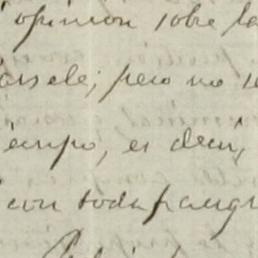 opinion sobre la
ársele; pero no se
iempo, es decir,
con toda franqu